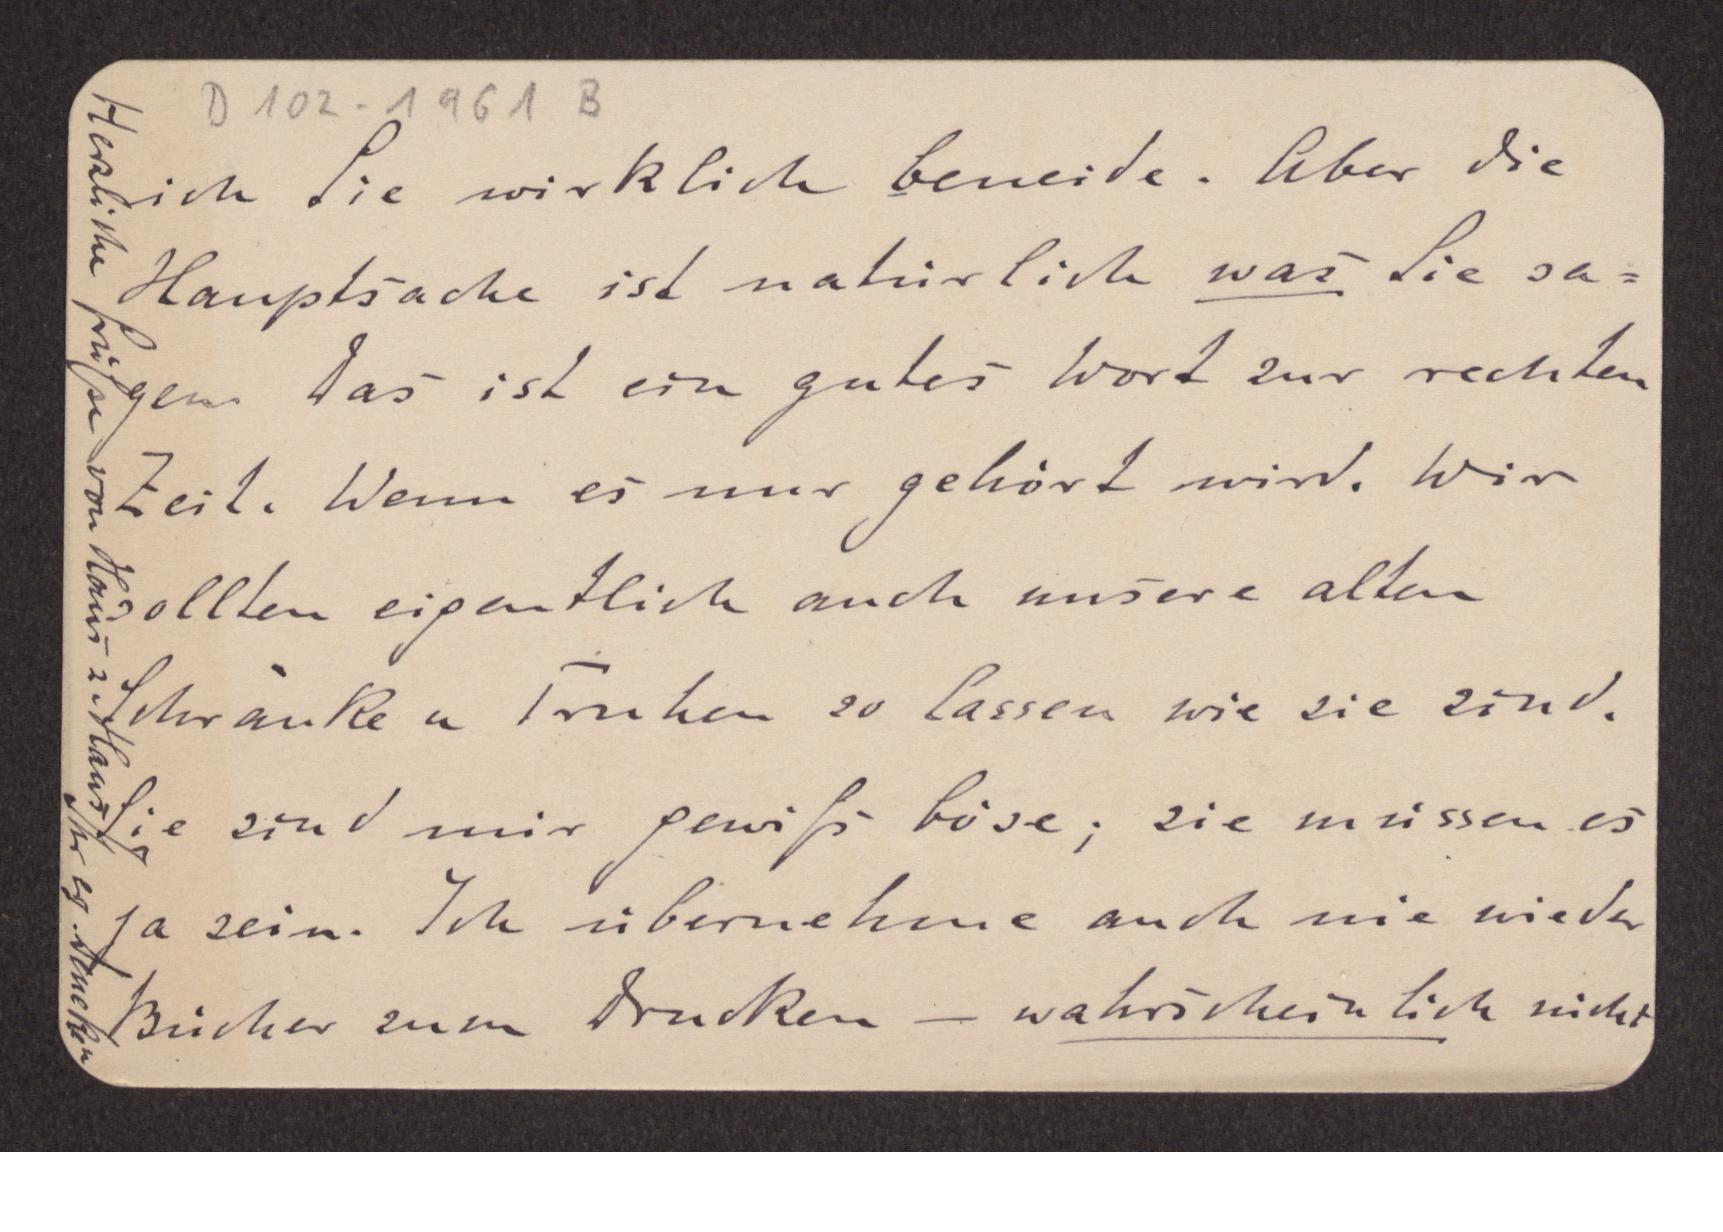 D 102-1961 B
ich Sie wirklich beneide. Aber die
Hauptsache ist natürlich was Sie sa=
gen. Das ist ein gutes Wort zur rechten
Zeit. Wenn es nur gehört wird. Wir
sollten eigentlich auch unsere alten
Schränke u Truhen so lassen wie sie sind.
Sie sind mir gewiß böse; sie müssen es
ja sein. Ich übernehme auch nie wieder
Bücher zum Drucken – wahrscheinlich nicht
Herzliche Grüße von Haus z. Haus
Ihr